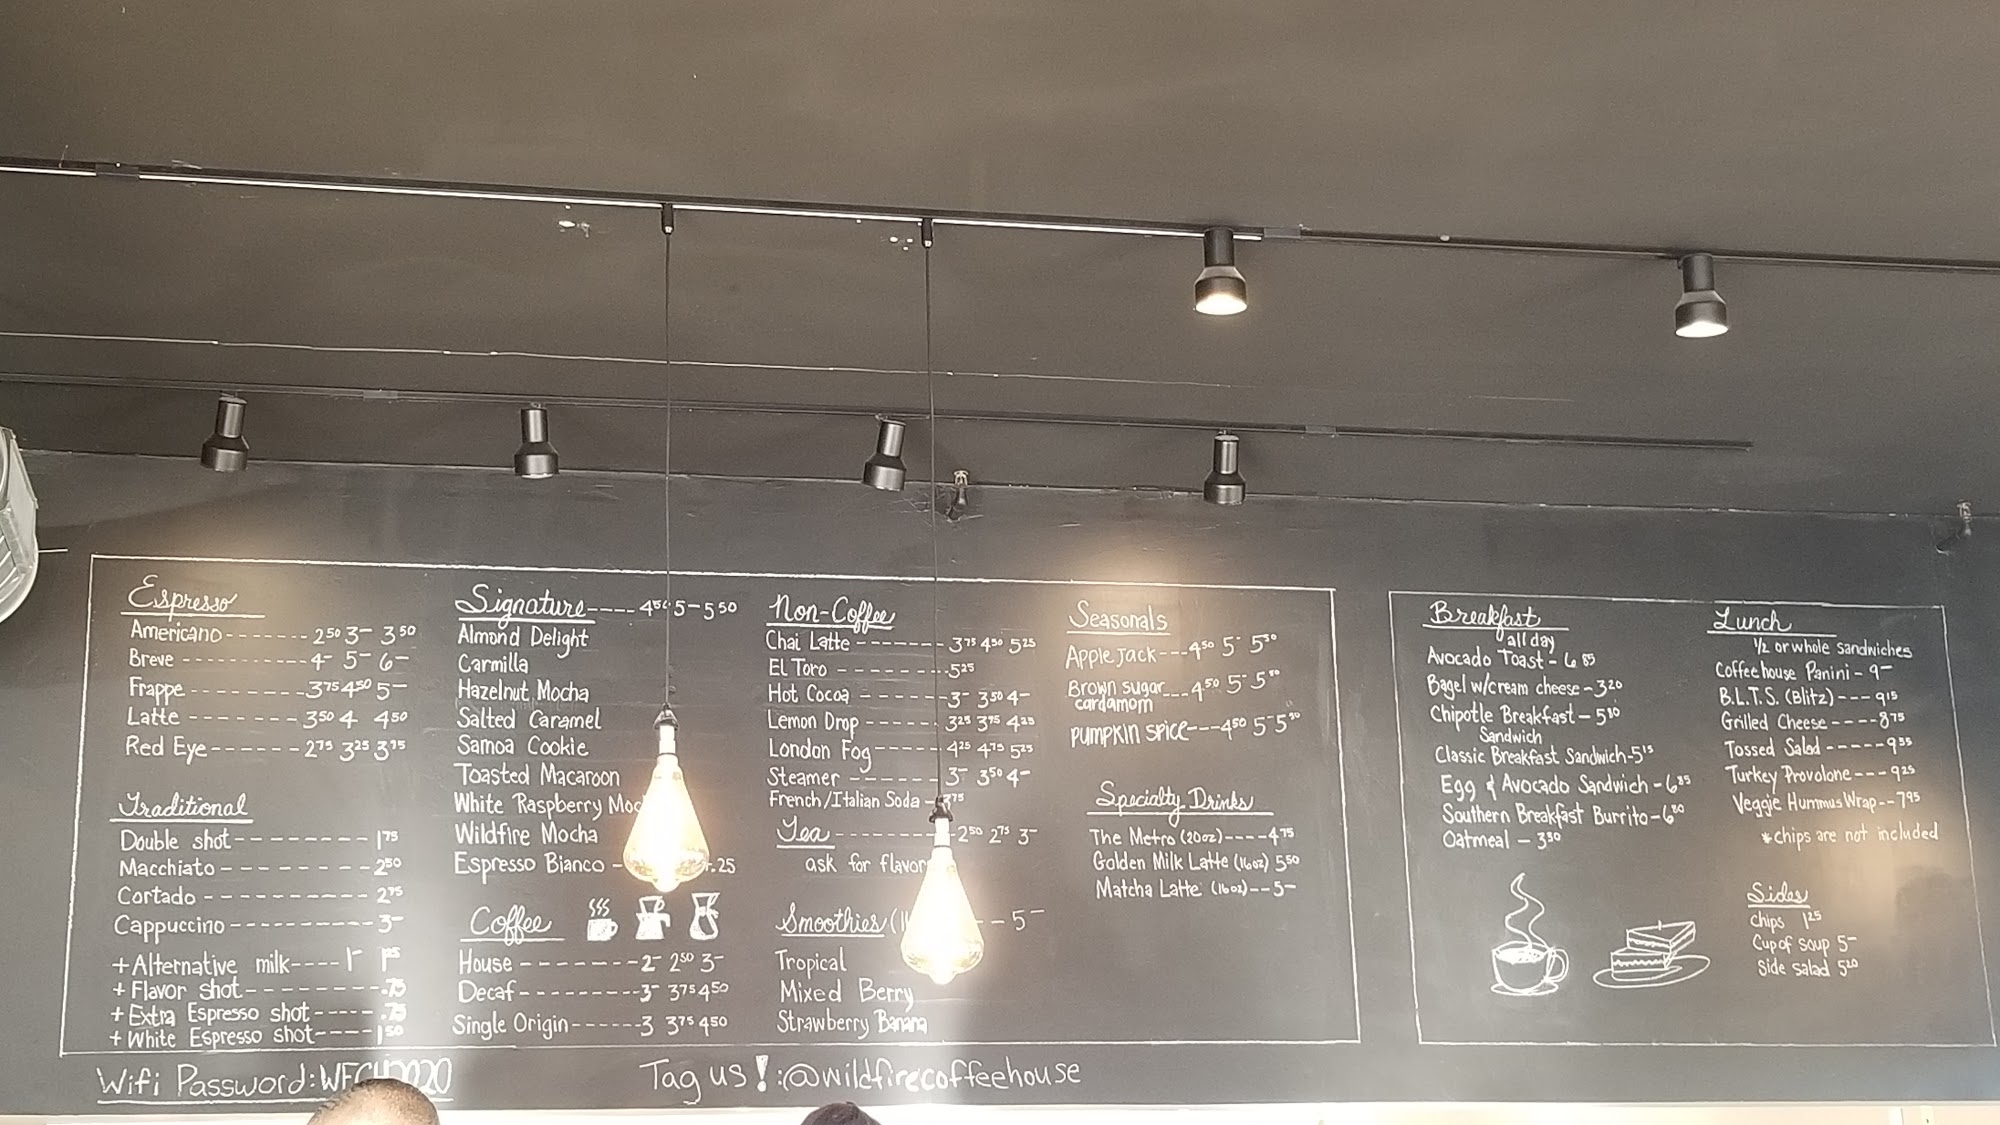 Espresso
Americano------- 2⁵⁰ 3- 3⁵⁰
Breve ---------- 4- 5- 6-
Frappe -------- 3⁷⁵ 4⁵⁰ 5-
Latte ------- 3⁵⁰ 4 4⁵⁰
Red Eye------ 2⁷⁵ 3²⁵ 3⁷⁵
Traditional
Double shot----------- 1⁷⁵
Macchiato -------- 2⁵⁰
Cortado ---------- 2⁷⁵
Cappuccino---------- 3-
+ Alternative milk---- 1- 1²⁵
+ Flavor shot--------- .75
+ Extra Espresso shot---- .75
+ White Espresso shot---- 1⁵⁰
Signature---- 4⁵⁰ 5- 5⁵⁰
Almond Delight
Carmilla
Hazelnut Mocha
Salted Caramel
Samoa Cookie
Toasted Macaroon
White Raspberry
Wildfire Mocha
Espresso Bianco -
Coffee
House -------- 2- 2⁵⁰ 3-
Decaf--------- 3- 3⁷⁵ 4⁵⁰
Single Origin------ 3 3⁷⁵ 4⁵⁰
Non-Coffee
Chai Latte ------- 3⁷⁵ 4⁵⁰ 5²⁵
El Toro -------- 5²⁵
Hot Cocoa ------- 3- 3⁵⁰ 4-
Lemon Drop ------ 3²⁵ 3⁷⁵ 4²⁵
London Fog------ 4²⁵ 4⁷⁵ 5²⁵
Steamer ------- 3- 3⁵⁰ 4-
French/Italian Soda -
Tea --------- 2⁵⁰ 2⁷⁵ 3-
ask for
Smoothies - 5-
Tropical
Mixed Berry
Strawberry Banana
Seasonals
Apple Jack---4⁵⁰ 5- 5⁵⁰
Brown sugar---4⁵⁰ 5- 5⁵⁰
cardamom
pumpkin spice---4⁵⁰ 5- 5⁵⁰
Specialty Drinks
The Metro (20oz)----4⁷⁵
Golden Milk Latte (16oz) 5⁵⁰
Matcha Latte (16oz)--5-
Breakfast
all day
Avocado Toast- 6⁸⁵
Bagel w/cream cheese-3²⁰
Chipotle Breakfast-
Sandwich
Classic Breakfast Sandwich-5¹⁵
Egg & Avocado Sandwich-6⁸⁵
Southern Breakfast Burrito-6⁸⁰
Oatmeal - 3⁵⁰
Lunch
1/2 or whole sandwiches
Coffeehouse Panini - 9-
B.L.T.S. (Blitz)---9¹⁵
Grilled Cheese ----8⁷⁵
Tossed Salad -----
Turkey Provolone---9²⁵
Veggie Hummus Wrap--7⁹⁵
*chips are not included
Sides
chips 1²⁵
Cup of soup 5-
Side salad 5²⁰
Wifi Password:
Tag us!:@wildfirecoffeehouse